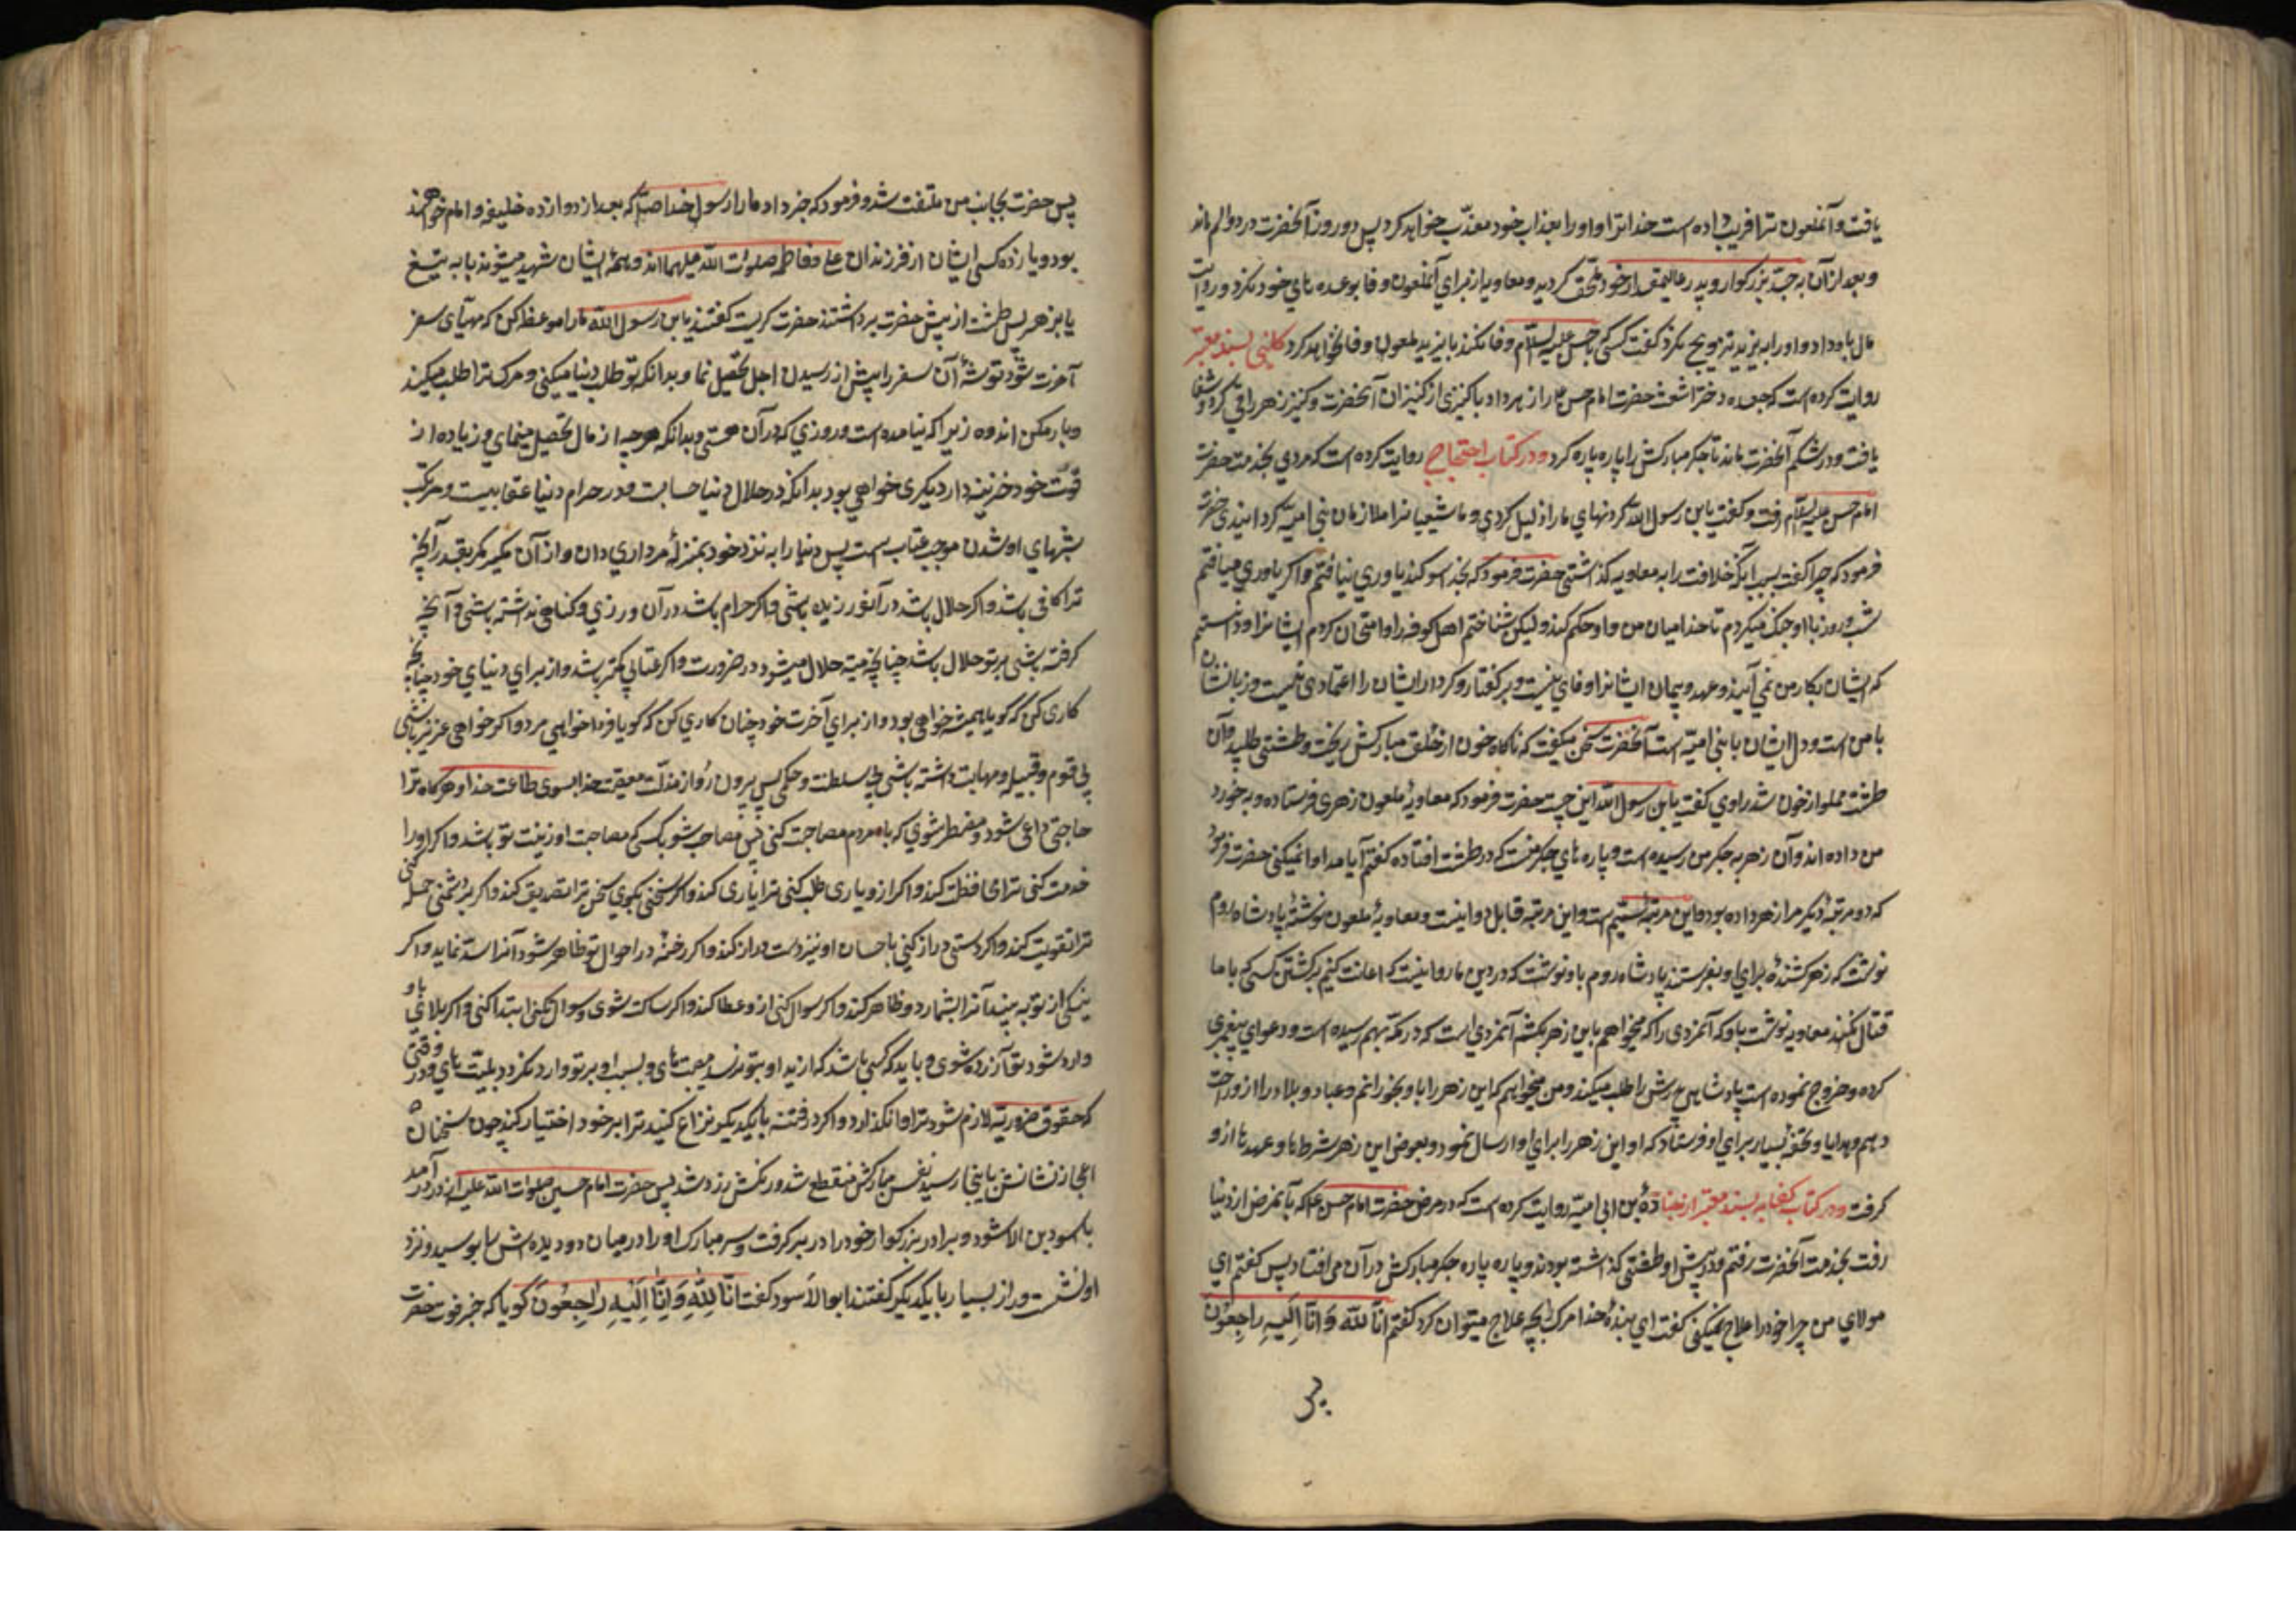 یافت و آنملعون ترا فریب داده است خدا ترا و او را بعذاب خود معذب خواهد کرد پس دو روز آنحضرت در د و الم ماند
و بعد از آن به جد بزرکوار و پدر عالیمقدار خود ملحق کردید و معاویه از برای آنملعون وفا بوعده های خود نکرد و روایت
مال باو داد و او را به یزید تزویج نکرد کفت کسی که با حسن علیه السلام وفا نکند با یزید ملعون وفا نخواهد کرد کلینی بسند معتبر
روایت کرده است که جعده دختر اشعث حضرت امام حسن ع را زهر داد با کنیزی از کنیزان آنحضرت و کنیز زهر را قی کرد و شفا
یافت و در شکم آنحضرت ماند تا جکر مبارکش را پاره پاره کرد و در کتاب احتجاج روایت کرده است که مردی بخدمت حضرت
امام حسن علیه السلام رفت و کفت یابن رسول الله کردنهای ما را ذلیل کردی و ما شیعیانرا غلامان بنی امیه کردانیدی حضرت
فرمود که چرا کفت بسبب آنکه خلافت را به معاویه کذاشتی حضرت فرمود که بخدا سوکند یاوری نیافتم و اکر یاوری میافتم
شب و روز با او جنک میکردم تا خدا میان من و او حکم کند ولیکن شناختم اهل کوفه را و امتحان کردم ایشانرا و دانستم
که ایشان بکار من نمی آیند و عهد و پیمان ایشانرا وفای نیست و بر کفتار و کردار ایشان را اعتمادی نیست و زبانشان
با من است و دل ایشان با بنی امیه است آنحضرت سخن میکفت که ناکاه خون از حلق مبارکش ریخت و طشتی طلبید و آن
طشت مملو از خون شد راوی کفت یابن رسول الله این چیست حضرت فرمود که معاویه ملعون زهری فرستاده و به خورد
من داده اند و آن زهر به جکر من رسیده است و پاره های جکر منست که در طشت افتاده کفتم آیا مداوا نمیکنی حضرت فرمود
که دو مرتبه دیکر مرا زهر داده بود و این مرتبه سیم است و این مرتبه قابل دوا نیست و معاویه ملعون نوشته پادشاه روم
نوشت که زهر کشنده برای او بفرستد پادشاه روم باو نوشت که در دین ما روا نیست که اعانت کنیم بر کشتن کسی که با ما
قتال نکند معاویه نوشت باو که آنمردی را که میخواهم باین زهر بکشم آنمردی است که در مکه بهم رسیده است و دعوای پیغمبری
کرده و خروج نموده است پادشاهی پدرش را طلب میکند و من میخواهم که این زهر را باو بخورانم و عباد و بلاد را از او راحت
دهم و هدایا و تحفه بسیار برای او فرستاد که او این زهر را برای او ارسال نمود و بعوض این زهر شرط ها و عهد ها از او
کرفت و در کتاب کفایه بسند معتبر از جناده بن ابی امیه روایت کرده است که در مرض حضرت امام حسن ع که بآنمرض از دنیا
رفت بخدمت آنحضرت رفتم و در پیش او طشتی کذاشته بودند و پاره پاره جکر مبارکش در آن می افتاد پس کفتم ای
مولای من چرا خود را علاج نمیکنی کفت ای بنده خدا مرک را بچه علاج میتوان کرد کفتم انا لله و انا الیه راجعون
پس حضرت بجانب من ملتفت شد و فرمود که خبر داد ما را رسول خدا ص که بعد از دوازده خلیفه و امام خواهند
بود و یازده کس ایشان از فرزندان علی و فاطمه صلوات الله علیهما اند و همه ایشان شهید میشوند یا به تیغ
یا بزهر پس طشت از پیش حضرت برداشتند حضرت کریست کفتند یابن رسول الله ما را موعظه کن که مهیای سفر
آخرت شو و توشه آن سفر را پیش از رسیدن اجل تحصیل نما و بدانکه تو طلب دنیا میکنی و مرک ترا طلب میکند
و بار مکن اندوه زیرا که نیامده است و روزی که در آن هستی و بدانکه هرچه از مال تحصیل مینمای و زیاده از
قوت خود خزینه دار دیکری خواهی بود بدانکه در حلال دنیا حسابست و در حرام دنیا عقابیست و مرتکب
شبهای او شدن موجب عتاب است پس دنیا را به نزد خود بمنزله مرداری دان و از آن مکیر مکر بقدر آنچه
ترا کافی باشد و اکر حلال باشد در آن زهد ورزیده باشی و اکر حرام باشد در آن ورزی و کناهی نداشته باشی و آنچه
کرفته باشی بر تو حلال باشد چنانچه میته حلال میشود در ضرورت و اکر عتابی کمتر باشد و از برای دنیای خود چنان
کاری کن که کویا همیشه خواهی بود و از برای آخرت خود چنان کاری کن که کویا فردا خواهی مرد و اکر خواهی عزیز باشی
بی قوم و قبیله و مهابت داشته باشی بی سلطنت و حکمی پس بیرون رو از مذلت معصیت خدا بسوی طاعت خدا و هرکاه ترا
حاجتی داعی شود و مضطر شوی که با مردم مصاحبت کنی پس مصاحب شو با کسی که مصاحبت او زینت تو باشد و اکر او را
خدمت کنی ترا محافظت کند و اکر از و یاری طلب کنی ترا یاری کند و اکر سخنی بکوی سخن ترا تصدیق کند و اکر بر دشمنی حمله کنی
ترا تقویت کند و اکر دستی دراز کنی باحسان او نیز دست دراز کند و اکر رخنه در احوال تو ظاهر شود آنرا سد نماید و اکر
نیکی از تو به بیند آنرا بشمارد و ظاهر کند و اکر سوال کنی از و عطا کند و اکر ساکت شوی و سوال نکنی ابتدا کند و اکر بلای باو
وارد شود تو آزرده شوی و باید که کسی باشد که از بد او بتو نرسد مصیبتهای و بسبب او بر تو وارد نکردد بلیت های و در وقتی
که حقوق ضروریه لازم شود ترا وا نکذارد و اکر در قسمت با یکدیکر نزاع کنید ترا بر خود اختیار کند چون سخنان
اعجاز نشانش باینجا رسید نفس مبارکش منقطع شد و رنکش زرد شد پس حضرت امام حسین صلوات الله علیه از در درآمد
با اسود بن الاسود و برادر بزرکوار خود را در بر کرفت و سر مبارک او را در میان دو دیده اش را بوسید و نزد
او نشست و راز بسیار با یکدیکر کفتند ابو الاسود کفت انا لله و انا الیه راجعون کویا که خبر فوت حضرت